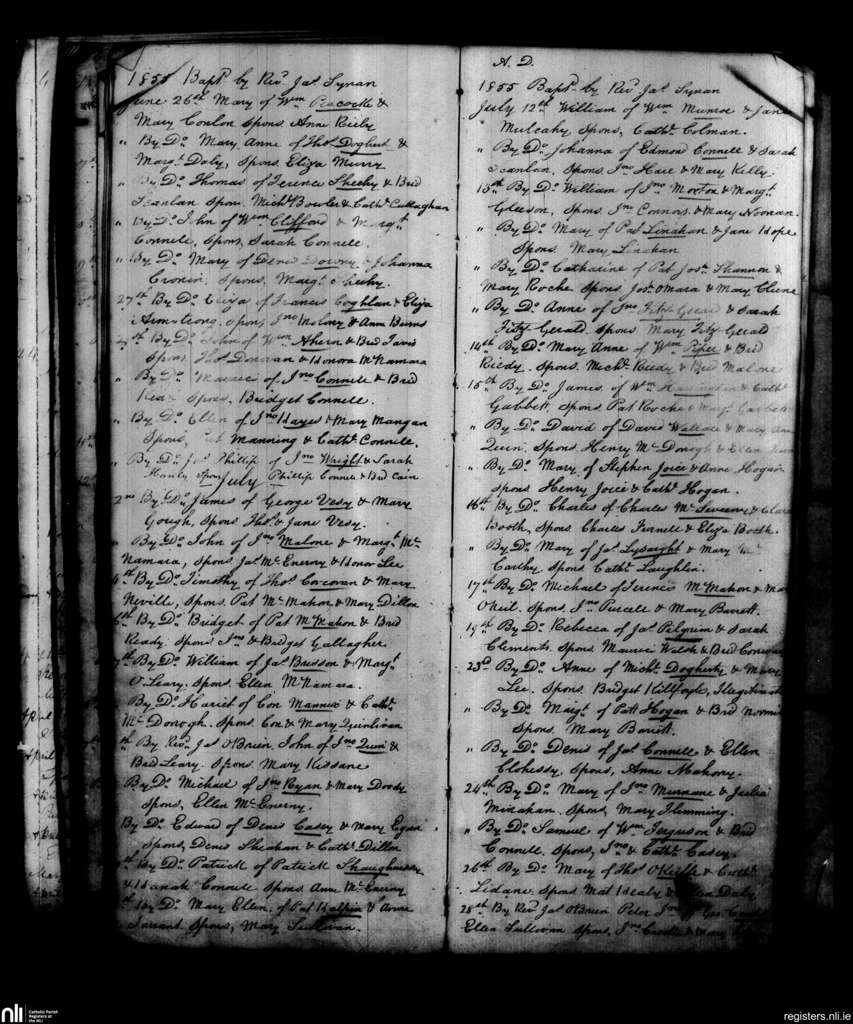 1855 Bapd. by Revd. Jas. Synan
June 26th Mary of Wm Peacock &
Mary Conlon Spons. Anne Rieby
" By Do. Mary Anne of Thos. Doghert &
Margt. Daly, Spons. Eliza Murry
" By Do. Thomas of Terence Sheehy & Brid
Scanlan Spon. Michl. Bowler & Cathe. Callaghan
" By Do. John of Wm Clifford & Margt.
Connell, Spons, Sarah Connell.
" By Do. Mary of Denis Downy & Johanna
Cronin, Spons. Margt. Sheehy.
27th By Do. Eliza of Francis Coghlan & Eliza
Armstrong. Spons, Jno Molony & Ann Burns
By Do. John of Wm Ahern & Brid
Spons. Thos. Donovan & Honora McNamara
" By Do. of Jno Connell & Brid
Spons, Bridget Connell.
" By Do. Ellen of Jno Hayes & Mary Mangan
Spons, Manning & Cathe. Connell.
" By Do. Jas. Phillip of Jno Wright & Sarah
Hanly Spons Phillip Conner & Brid Cain
July
2nd By Do. James of George Vesy & Mary
Gough, Spons Thos. & Jane Vesy.
" By Do. John of Jno Malone & Margt. Mc
Namara, Spons, Jas. McEnerny & Honor Lee
By Do. Timothy of Thos. Corcoran & Mary
Neville, Spons. Pat McMahon & Mary Dillon
6th By Do. Bridget of Pat McMahon & Brid
Ready. Spons Jno & Bridget Gallagher
7th By Do. William of Jas. & Margt.
O'Leary. Spons. Ellen McNamara.
By Do. Harriet of Con Mannix & Cathe.
McDonogh. Spons. Con & Mary Quinlivan
By Revd. Jas. O'Brien. John of Jno Quin &
Brid Leary. Spons. Mary Kissane
By Do. Michael of Jno Ryan & Mary Doody
Spons, Ellen McEnerny.
By Do. Edward of Denis Casey & Mary Egan
Spons, Denis Sheahan & Cathe. Dillon
By Do. Patrick of Patrick Shaughnessy
& Hanah Connell Spons Anne McEnerny
By Do. Mary Ellen, of Pat Halpin & Anne
Sarsant. Spons, Mary Sullivan.
A. D.
1855 Bapd. by Revd. Jas. Synan
July 12th William of Wm Munroe & Jane
Mulcahy, Spons, Cathe. Colman.
" By Do. Johanna of Edmond Connell & Sarah
Scanlan. Spons. Jno Hare & Mary Kelly.
13th By Do. William of Jno Morton & Margt.
Gleeson, Spons. Jno Connors, & Mary Noonan.
" By Do. Mary of Pat Linahan & Jane Hope
Spons. Mary Linahan
" By Do. Catharine of Pat Josh. Shannon &
Mary Roche Spons Jos. O'Mara & Mary Clune
" By Do. Anne of Jno Fitz Gerald & Sarah
Fitz Gerald. Spons Mary Fitz Gerald
14th By Do. Mary Anne of Wm Piper & Brid
Reidy. Spons. Michl. Reidy & Brid Malone
15th By Do. James of Wm Harrington & Cathe.
Gabbett, Spons Pat Roche & Mary
" By Do. David of David Wallace & Mary Ann
Quin. Spons. Henry McDonogh & Ellen
" By Do. Mary of Stephen Joice & Anne Hogan
Spons Henry Joice & Cathe. Hogan.
16th By Do. Charles of Charles McSweeny & Clara
Booth, Spons Charles Furnell & Eliza Booth.
" By Do. Mary of Jas. Lysaght & Mary Mc
Carthy. Spons Cathe. Laughlin.
17th By Do. Michael of Terence McMahon &
O'Neil. Spons. Jno Purcell & Mary Barrett.
19th By Do. Rebecca of Jas. Pilgrim & Sarah
Clements. Spons Maurice Walsh & Brid
23d By Do. Anne of Michl. Dogherty & Mary
Lee. Spons Bridget Killfoyle, Illegitimate
" By Do. Margt. of Patk Hogan & Brid
Spons. Mary Barrett.
" By Do. Denis of Jas. Connell & Ellen
Clohessy, Spons, Anne Mahony.
24th By Do. Mary of Jno Murnane & Julia
Minahan. Spons, Mary Flemming.
" By Do. Samuel of Wm Ferguson & Brid
Connell. Spons, Jno & Cathe. Casey.
26th By Do. Mary of Thos. O'Kieffe & Cathe.
Lidane. Spons Mat Healy & Daly
28th By Revd. Jas. O'Brien Peter
Ellen Sullivan Spons, Jno & Mary
nli
Catholic Parish
Registers at
the NLI
registers.nli.ie